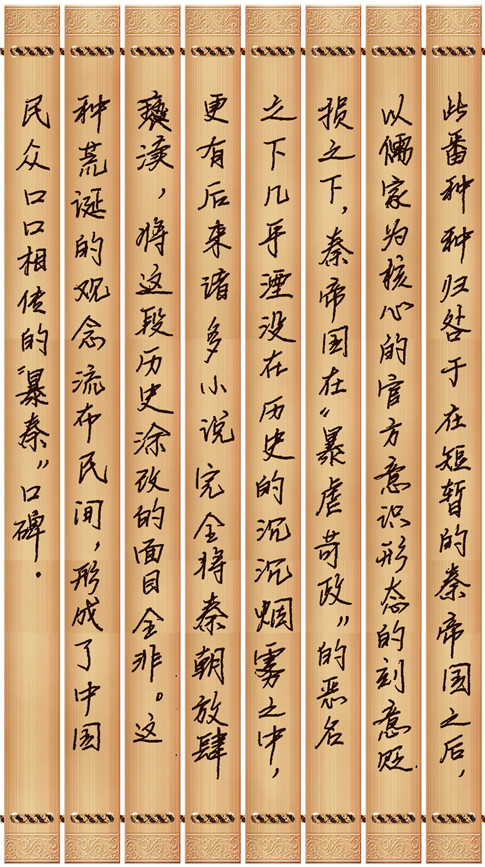 此番种种归咎于在短暂的秦帝国之后，
以儒家为核心的官方意识形态的刻意贬
损之下，秦帝国在“暴虐苛政”的恶名
之下几乎湮没在历史的沉沉烟雾之中，
更有后来诸多小说完全将秦朝放肆
亵渎，将这段历史涂改的面目全非。这
种荒诞的观念流布民间，形成了中国
民众口口相传的“暴秦”口碑．